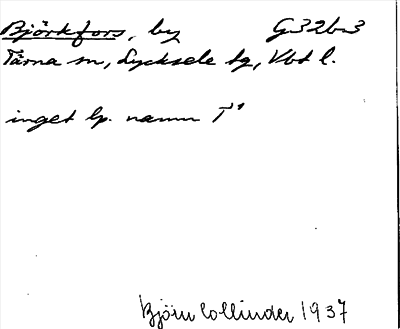 Björkfors, by G32b3
Tärna sn, Lycksele lg, Vbt l.
inget lp. namn T'
Björn Collinder 1937